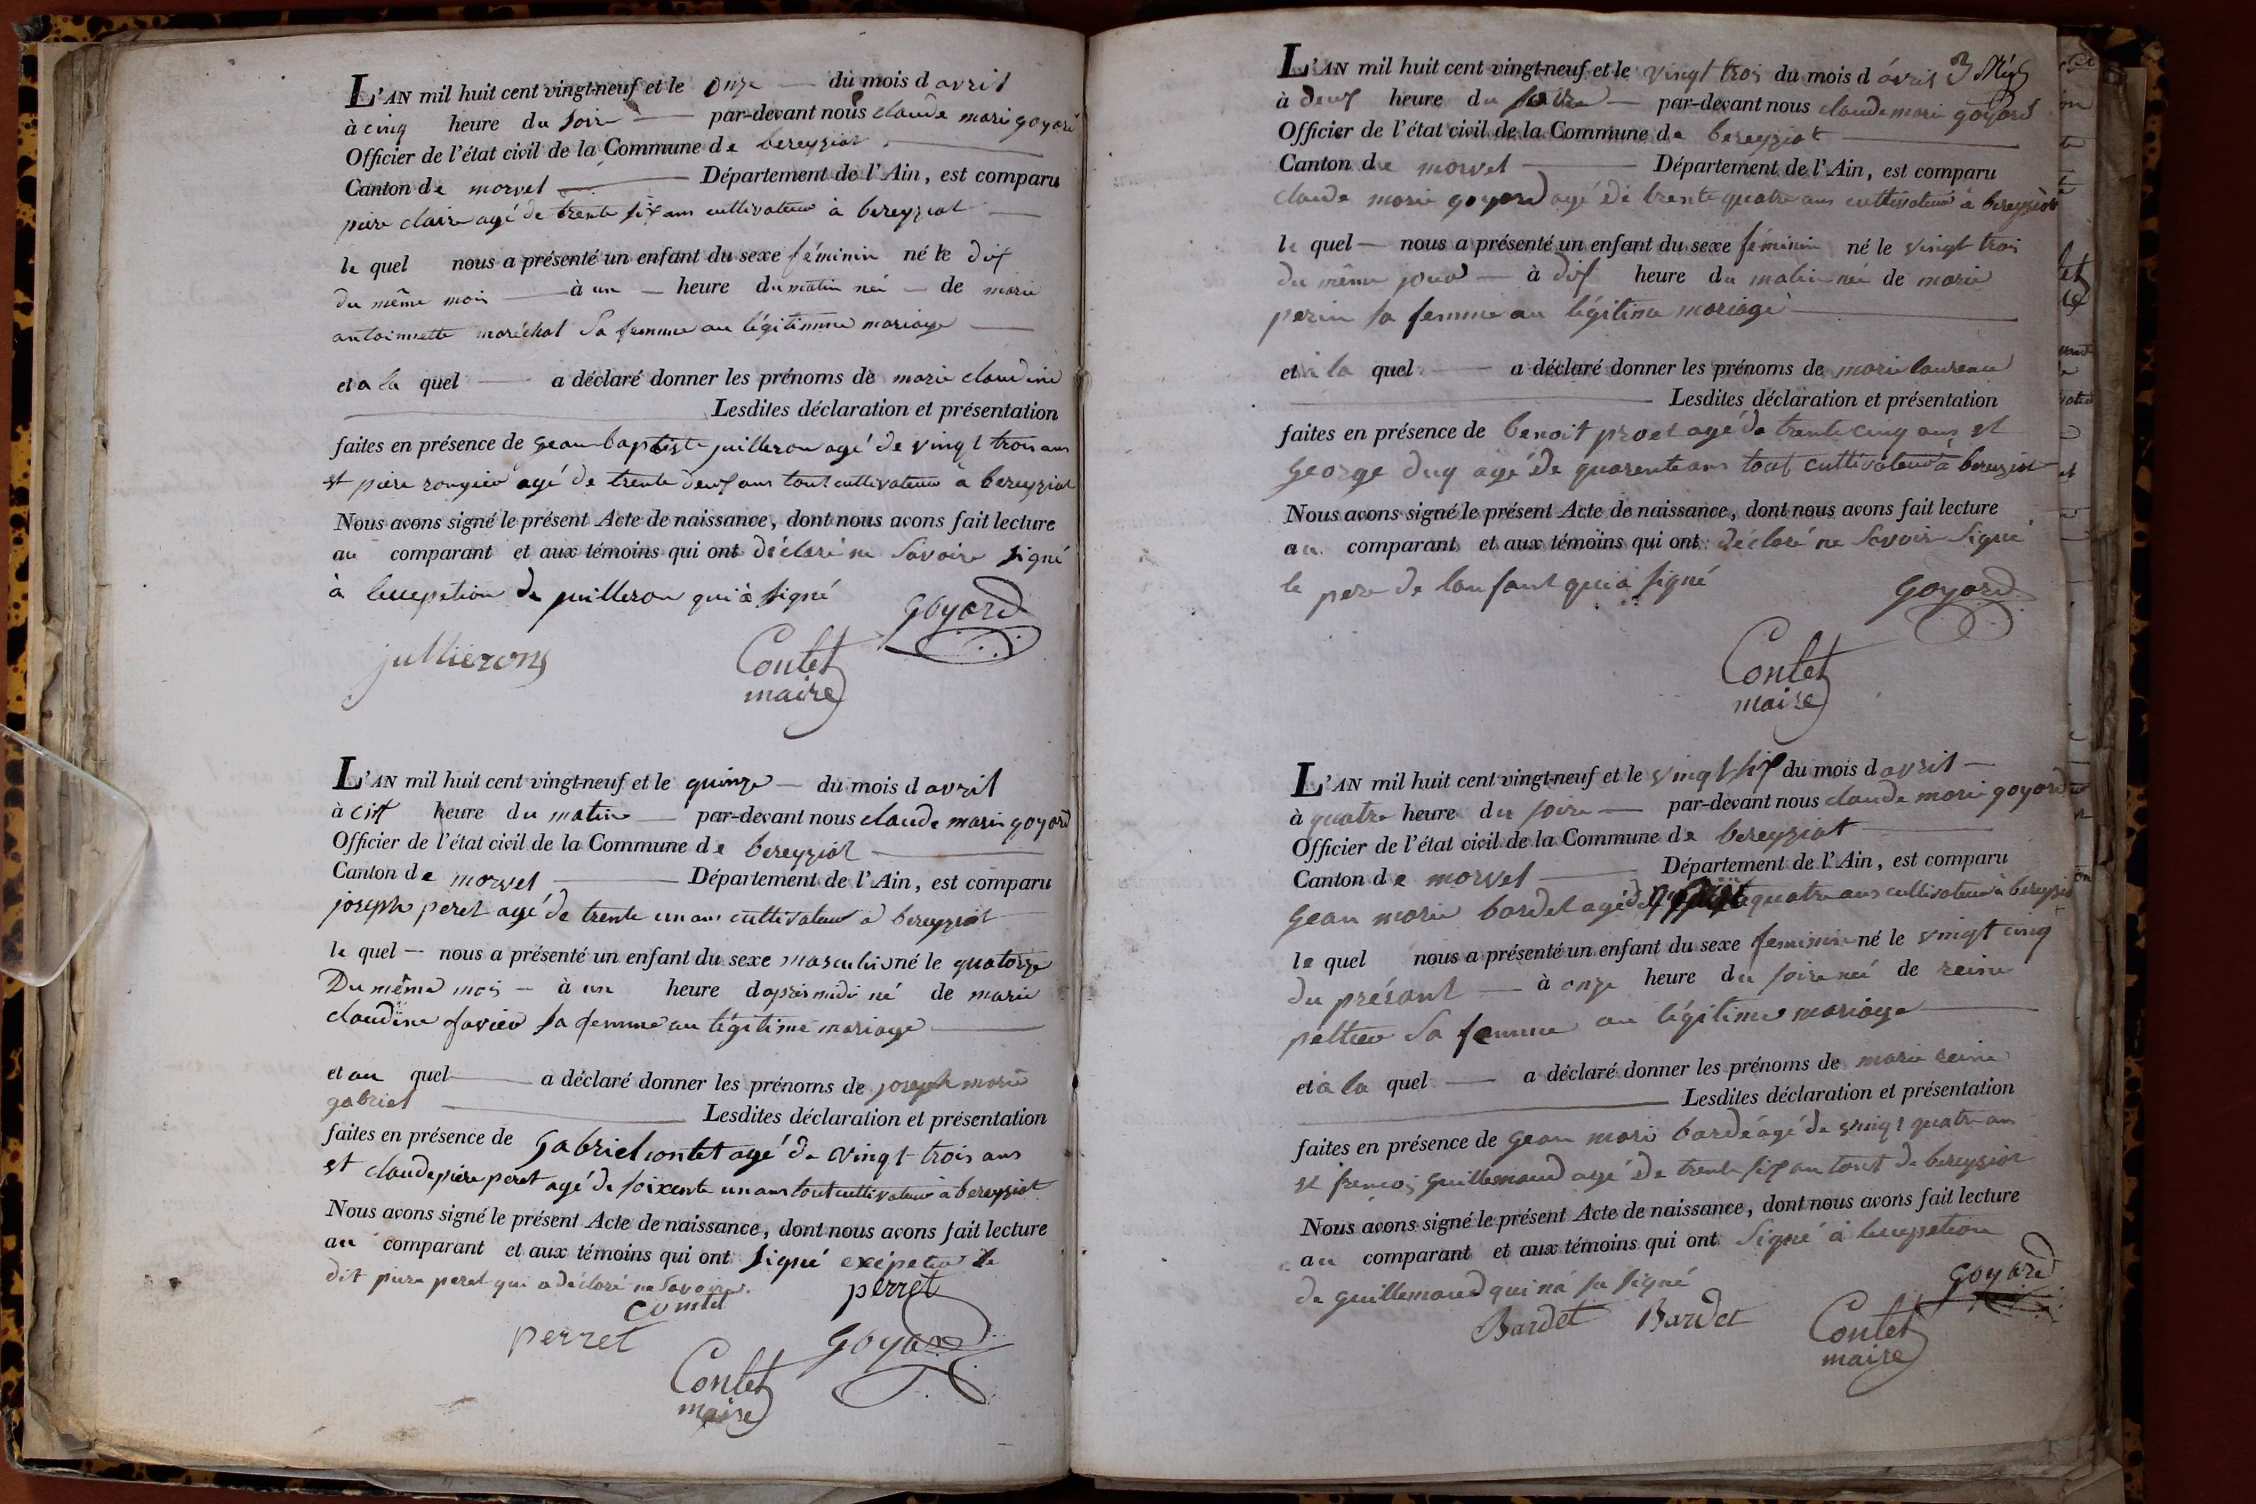 L'AN mil huit cent vingt-neuf et le onze du mois d avril
à cinq heure du soire par-devant nous claude marie goyard
Officier de l'état civil de la Commune de bereyziat
Canton de morvel Département de l'Ain, est comparu
piere claire agé de trente six ans cultivateur à bereyziat
le quel nous a présenté un enfant du sexe féminin né le dix
du même mois à un heure du matin né de marie
antoinnette maréchal sa femme an légitimme mariage
et a la quel a déclaré donner les prénoms de marie claudine
Lesdites déclaration et présentation
faites en présence de gean baptiste juilleron agé de vingt trois ans
et piere rongier agé de trente deux ans tout cultivateur à bereyziat
Nous avons signé le présent Acte de naissance, dont nous avons fait lecture
au comparant et aux témoins qui ont déclaré ne savoire signé
à lecception de juilleron qui à signé
goyard
jullierons
Contet
maire
L'AN mil huit cent vingt-neuf et le quinze du mois d avril
à cix heure du matin par-devant nous claude marie goyard
Officier de l'état civil de la Commune de bereyziat
Canton de morvel Département de l'Ain, est comparu
joseph peret agé de trente un ans cultivateur à bereyziat
le quel nous a présenté un enfant du sexe masculin né le quatorze
Du même mois à un heure daprès midi né de marie
claudine favier sa femme an légitime mariage
et au quel a déclaré donner les prénoms de joseph marie
gabriel Lesdites déclaration et présentation
faites en présence de gabriel contet agé de vingt trois ans
et claude piere peret agé de soixente un ans tout cultivateur à bereyziat
Nous avons signé le présent Acte de naissance, dont nous avons fait lecture
au comparant et aux témoins qui ont signé le
dit piere peret qui a déclaré ne savoire.
comtet perret
perret goyard
Contet
maire
L'AN mil huit cent vingt-neuf et le vingt trois du mois d avril
à deux heure du par-devant nous claude marie goyard
Officier de l'état civil de la Commune de bereyziat
Canton de morvel Département de l'Ain, est comparu
claude marie goyard agé de trente quatre ans cultivateur à bereyziat
le quel nous a présenté un enfant du sexe féminin né le vingt trois
du même jour à dix heure du matin né de marie
perin sa femme an légitime mariage
et à la quel a déclaré donner les prénoms de marie laureau
Lesdites déclaration et présentation
faites en présence de benoit proet agé de trente cinq ans et
george duq agé de quarente ans tout cultivateur à bereyziat
Nous avons signé le présent Acte de naissance, dont nous avons fait lecture
au comparant et aux témoins qui ont déclaré ne savoir signé
le pere de lanfant qui à signé
goyard
Contet
maire
L'AN mil huit cent vingt-neuf et le vingt six du mois d avril
à quatre heure du soire par-devant nous claude marie goyard
Officier de l'état civil de la Commune de bereyziat
Canton de morvel Département de l'Ain, est comparu
gean marie bardet agé de quatre ans cultivateur à bereyziat
le quel nous a présenté un enfant du sexe feminin né le vingt cinq
du présant à onze heure du soire né de reine
sa femme an légitime mariage
et à la quel a déclaré donner les prénoms de marie reine
Lesdites déclaration et présentation
faites en présence de gean marie bardé agé de vingt quatre an
et francois guillemaud agé de trente six an tout de bereyziat
Nous avons signé le présent Acte de naissance, dont nous avons fait lecture
au comparant et aux témoins qui ont signé à lecception
de guillemaud qui na su signé
goyard
Bardet Bardet Contet
maire